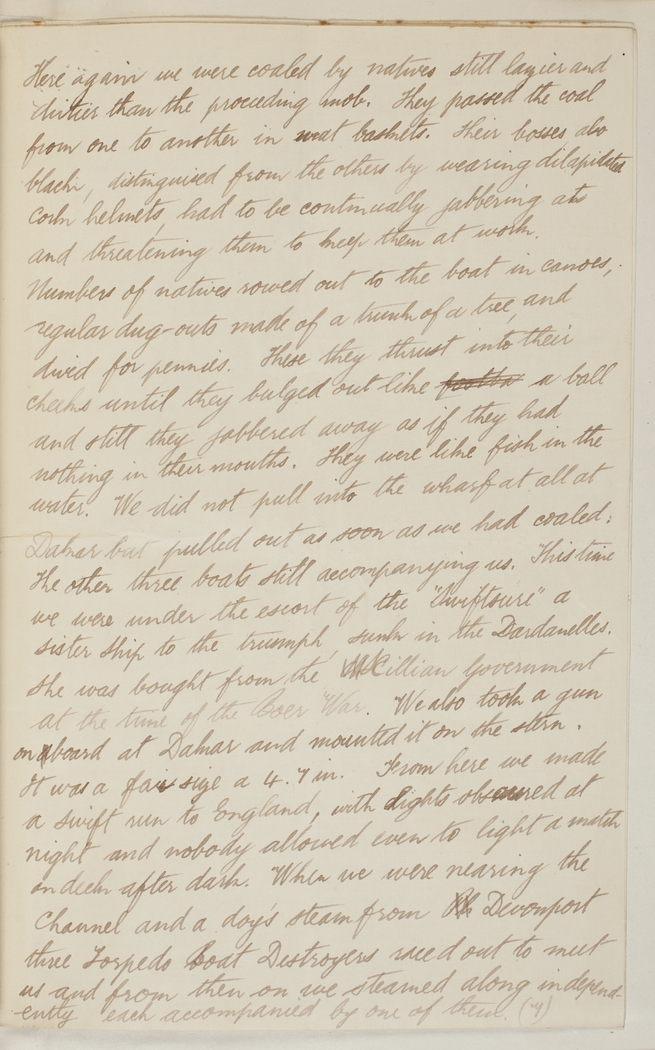 Here again we were coaled by natives still lazier and
dirtier than the proceeding mob. They passed the coal
from one to another in mat baskets. Their bosses also
black, distinguised from the others by wearing dilapidated
cork helmets, had to be continually jabbering at
and threatening them to keep them at work.
Numbers of natives rowed out to the boat in canoes,
regular dug-outs made of a trunk of a tree, and
dived for pennies. These they thrust into their
cheeks until they bulged out like footba a ball
and still they jabbered away as if they had
nothing in their mouths. They were like fish in the
water. We did not pull into the wharf at all at
Dakar but pulled out as soon as we had coaled:
The other three boats still accompanying us. This time
we were under the escort of the "Swiftsure" a
sister ship to the triumph, sunk in the Dardanelles.
She was bought from the Chillian Government
at the time of the Boer War. We also took a gun
on board at Dakar and mounted it on the stern.
It was a fair size a 4.7 in. From here we made
a swift run to England, with lights obscured at
night and nobody allowed even to light a match
on deck after dark. When we were nearing the
Channel and a day's steam from Devonport
three Torpedo Boat Destroyers raced out to meet
us and from then on we steamed along independ-
ently each accompanied by one of them. (4)